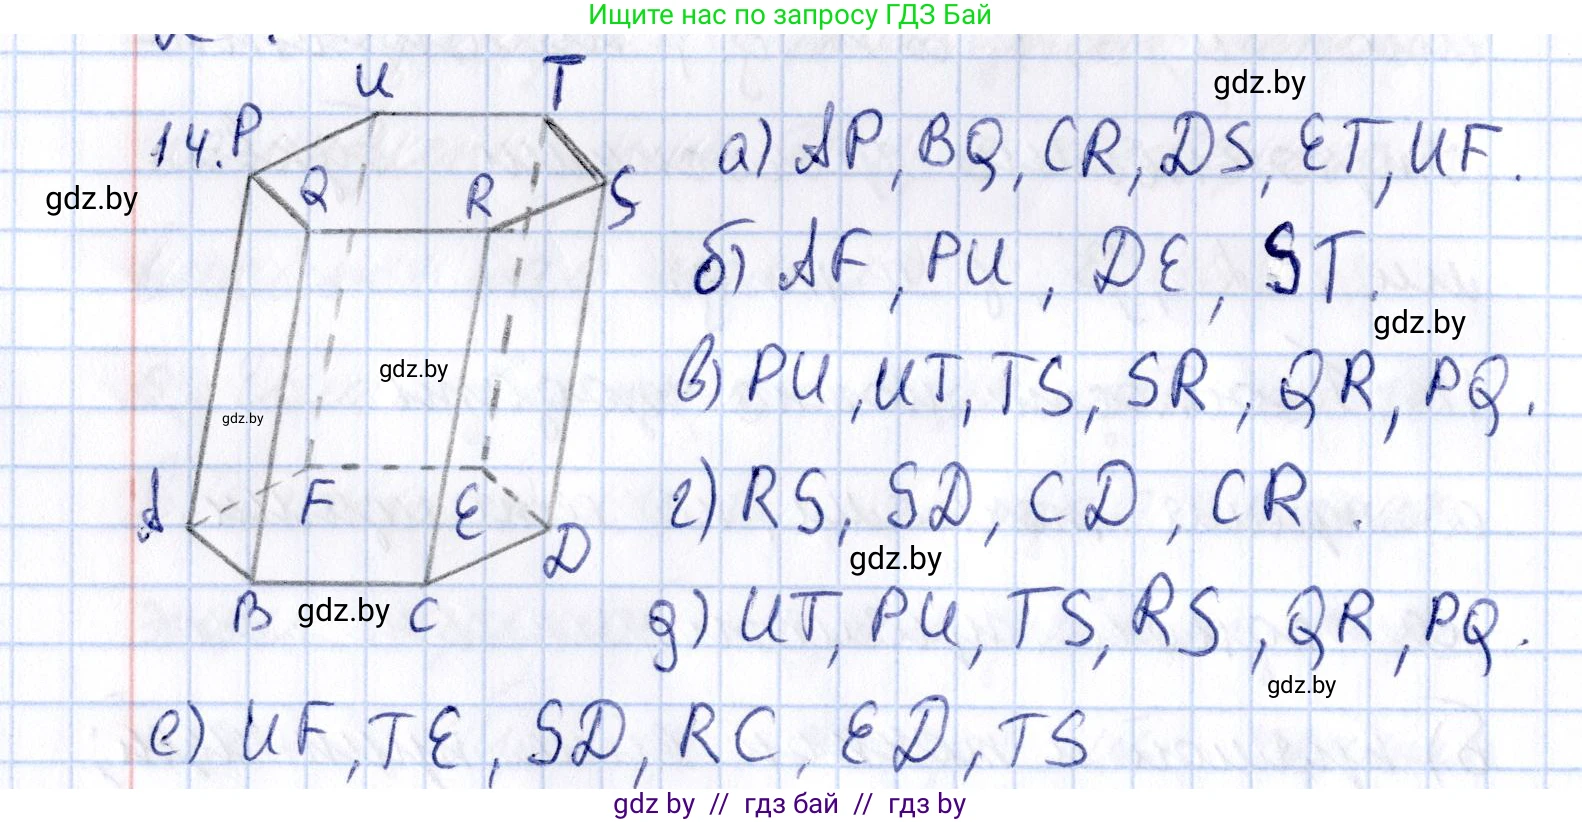 Ищите нас по запросу ГДЗ Бай
U T
14. P Q R S
а) AP, BQ, CR, DS, ET, UF.
gdz.by
gdz.by
б) AF, PU, DE, ST.
gdz.by
gdz.by
в) PU, UT, TS, SR, QR, PQ.
gdz.by
A F E D
г) RS, SD, CD, CR.
gdz.by
B gdz.by C
д) UT, PU, TS, RS, QR, PQ.
gdz.by
е) UF, TE, SD, RC, ED, TS
gdz by // гдз бай // гдз by